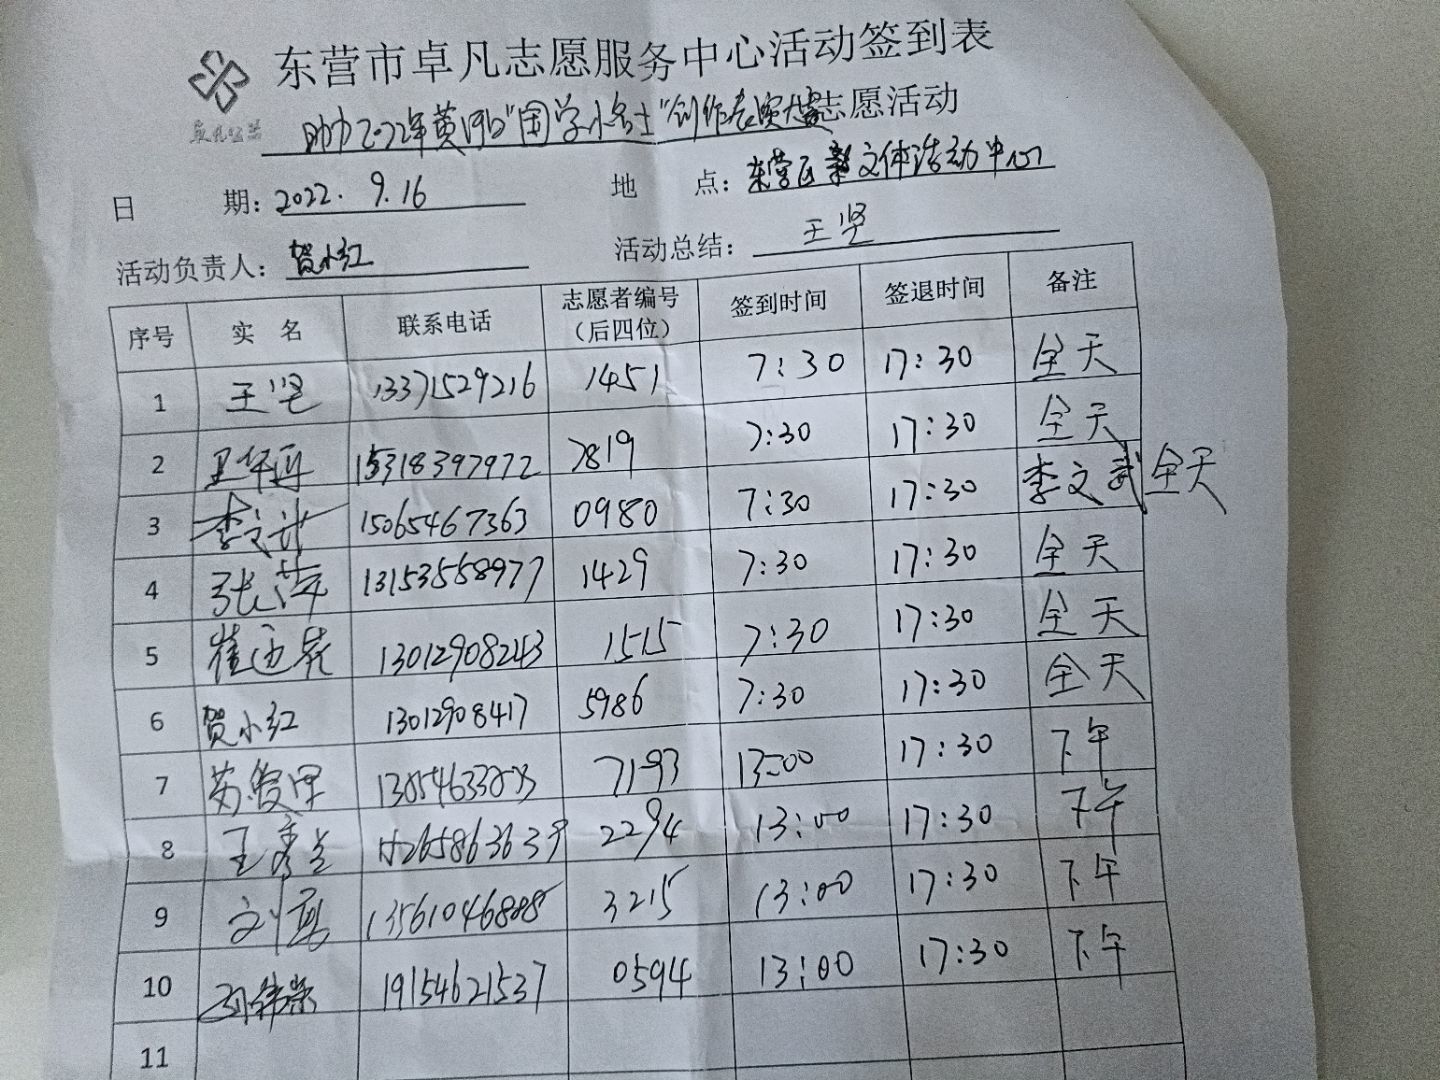 东营市卓凡志愿服务中心活动签到表
卓凡公益
助力2022年黄河口"国学小名士"创作表演大赛志愿活动
日期：2022.9.16 地点：东营区文体活动中心
活动负责人：贺小红 活动总结：王坚
序号 实名 联系电话 志愿者编号（后四位） 签到时间 签退时间 备注
1 王坚 13371529216 1451 7:30 17:30 全天
2 15318397972 7819 7:30 17:30 全天
3 李文武 15065467363 0980 7:30 17:30 李文武 全天
4 张萍 13153558977 1429 7:30 17:30 全天
5 崔迎花 13012908243 1515 7:30 17:30 全天
6 贺小红 13012908417 5986 7:30 17:30 全天
7 7193 13:00 17:30 下午
8 15265863639 2294 13:00 17:30 下午
9 13561046888 3215 13:00 17:30 下午
10 19154621537 0594 13:00 17:30 下午
11